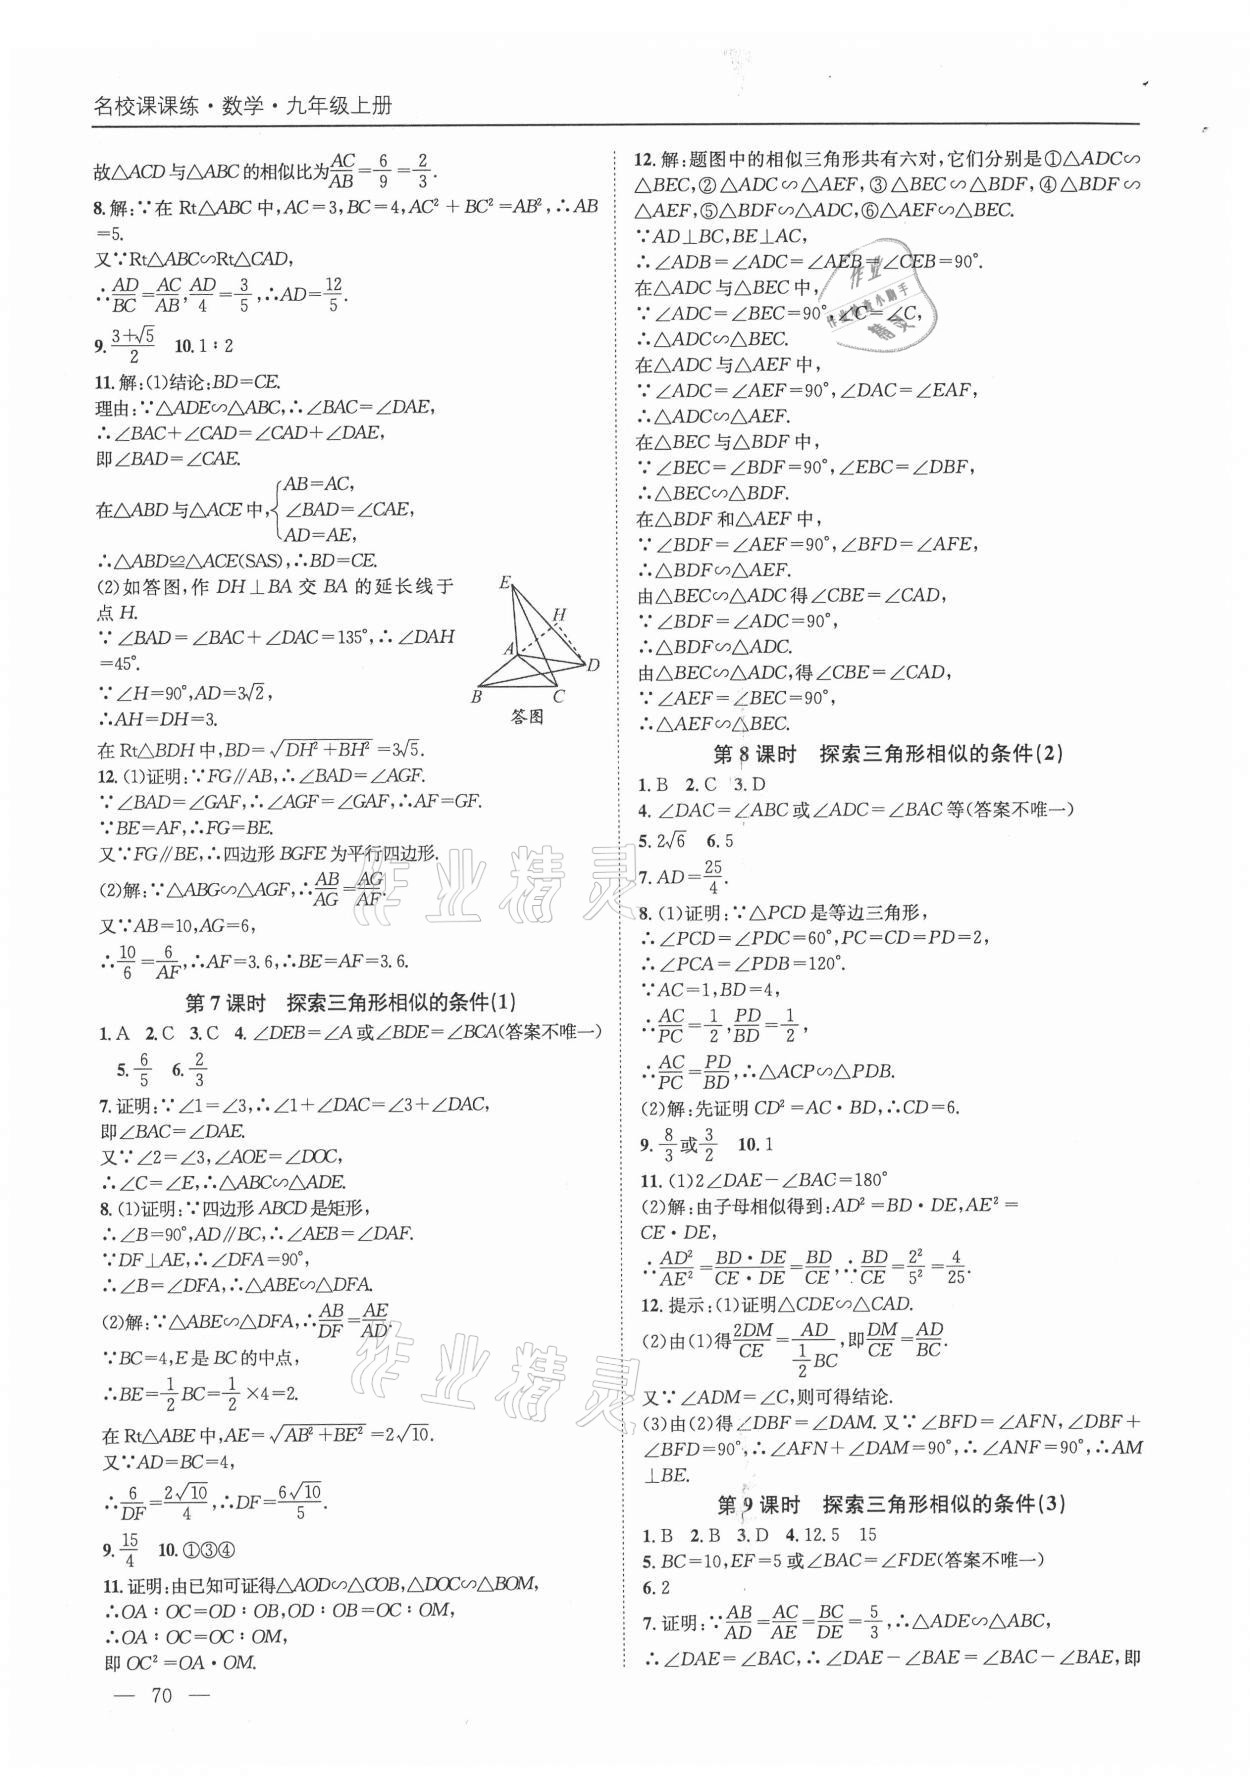 名校课课练·数学·九年级上册
故△ACD与△ABC的相似比为AC/AB=6/9=2/3.
8.解:∵在Rt△ABC中,AC=3,BC=4,AC²+BC²=AB²,∴AB
=5.
又∵Rt△ABC∽Rt△CAD,
∴AD/BC=AC/AB,AD/4=3/5,∴AD=12/5.
9.(3+√5)/2 10.1∶2
11.解:(1)结论:BD=CE.
理由:∵△ADE∽△ABC,∴∠BAC=∠DAE,
∴∠BAC+∠CAD=∠CAD+∠DAE,
即∠BAD=∠CAE.
AB=AC,
在△ABD与△ACE中,{∠BAD=∠CAE,
AD=AE,
∴△ABD≌△ACE(SAS),∴BD=CE.
(2)如答图,作DH⊥BA交BA的延长线于
点H.
∵∠BAD=∠BAC+∠DAC=135°,∴∠DAH
=45°.
∵∠H=90°,AD=3√2,
∴AH=DH=3.
E
H
A
D
B C
答图
在Rt△BDH中,BD=√(DH²+BH²)=3√5.
12.(1)证明:∵FG∥AB,∴∠BAD=∠AGF.
∵∠BAD=∠GAF,∴∠AGF=∠GAF,∴AF=GF.
∵BE=AF,∴FG=BE.
又∵FG∥BE,∴四边形BGFE为平行四边形.
(2)解:∵△ABG∽△AGF,∴AB/AG=AG/AF.
又∵AB=10,AG=6,
∴10/6=6/AF,∴AF=3.6,∴BE=AF=3.6.
第7课时 探索三角形相似的条件(1)
1.A 2.C 3.C 4.∠DEB=∠A或∠BDE=∠BCA(答案不唯一)
5.6/5 6.2/3
7.证明:∵∠1=∠3,∴∠1+∠DAC=∠3+∠DAC,
即∠BAC=∠DAE.
又∵∠2=∠3,∠AOE=∠DOC,
∴∠C=∠E,∴△ABC∽△ADE.
8.(1)证明:∵四边形ABCD是矩形,
∴∠B=90°,AD∥BC,∴∠AEB=∠DAF.
∵DF⊥AE,∴∠DFA=90°,
∴∠B=∠DFA,∴△ABE∽△DFA.
(2)解:∵△ABE∽△DFA,∴AB/DF=AE/AD.
∵BC=4,E是BC的中点,
∴BE=1/2BC=1/2×4=2.
在Rt△ABE中,AE=√(AB²+BE²)=2√10.
又∵AD=BC=4,
∴6/DF=2√10/4,∴DF=6√10/5.
9.15/4 10.①③④
11.证明:由已知可证得△AOD∽△COB,△DOC∽△BOM,
∴OA∶OC=OD∶OB,OD∶OB=OC∶OM,
∴OA∶OC=OC∶OM,
即OC²=OA·OM.
— 70 —
12.解:题图中的相似三角形共有六对,它们分别是①△ADC∽
△BEC,②△ADC∽△AEF,③△BEC∽△BDF,④△BDF∽
△AEF,⑤△BDF∽△ADC,⑥△AEF∽△BEC.
∵AD⊥BC,BE⊥AC,
∴∠ADB=∠ADC=∠AEB=∠CEB=90°.
在△ADC与△BEC中,
∵∠ADC=∠BEC=90°,∠C=∠C,
∴△ADC∽△BEC.
在△ADC与△AEF中,
∵∠ADC=∠AEF=90°,∠DAC=∠EAF,
∴△ADC∽△AEF.
在△BEC与△BDF中,
∵∠BEC=∠BDF=90°,∠EBC=∠DBF,
∴△BEC∽△BDF.
在△BDF和△AEF中,
∵∠BDF=∠AEF=90°,∠BFD=∠AFE,
∴△BDF∽△AEF.
由△BEC∽△ADC得∠CBE=∠CAD,
∵∠BDF=∠ADC=90°,
∴△BDF∽△ADC.
由△BEC∽△ADC,得∠CBE=∠CAD,
∵∠AEF=∠BEC=90°,
∴△AEF∽△BEC.
第8课时 探索三角形相似的条件(2)
1.B 2.C 3.D
4.∠DAC=∠ABC或∠ADC=∠BAC等(答案不唯一)
5.2√6 6.5
7.AD=25/4.
8.(1)证明:∵△PCD是等边三角形,
∴∠PCD=∠PDC=60°,PC=CD=PD=2,
∴∠PCA=∠PDB=120°.
∵AC=1,BD=4,
∴AC/PC=1/2,PD/BD=1/2,
∴AC/PC=PD/BD,∴△ACP∽△PDB.
(2)解:先证明CD²=AC·BD,∴CD=6.
9.8/3或3/2 10.1
11.(1)2∠DAE-∠BAC=180°
(2)解:由子母相似得到:AD²=BD·DE,AE²=
CE·DE,
∴AD²/AE²=BD·DE/CE·DE=BD/CE,∴BD/CE=2²/5²=4/25.
12.提示:(1)证明△CDE∽△CAD.
(2)由(1)得2DM/CE=AD/(1/2BC),即DM/CE=AD/BC.
又∵∠ADM=∠C,则可得结论.
(3)由(2)得∠DBF=∠DAM.又∵∠BFD=∠AFN,∠DBF+
∠BFD=90°,∴∠AFN+∠DAM=90°,∴∠ANF=90°,∴AM
⊥BE.
第9课时 探索三角形相似的条件(3)
1.B 2.B 3.D 4.12.5 15
5.BC=10,EF=5或∠BAC=∠FDE(答案不唯一)
6.2
7.证明:∵AB/AD=AC/AE=BC/DE=5/3,∴△ADE∽△ABC,
∴∠DAE=∠BAC,∴∠DAE-∠BAE=∠BAC-∠BAE,即
作业精灵
作业精灵
作业
作业检查小助手
精灵